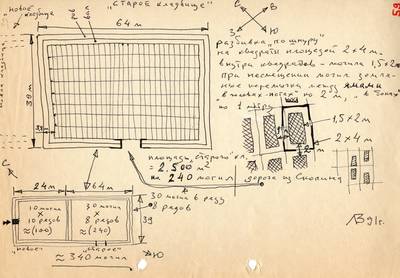 "СТАРОЕ КЛАДБИЩЕ"
"НОВОЕ"
64 м
39 м
С
В
З
Ю
Разбивка "по шнуру"
на квадраты площадей 2×4 м.
внутри квадратов – могила 1,5×2 м
При размещении могил земля-
ные перемычки между ямами
в "головах-ногах" по 2 м, в "боках"
по 1 метру.
1,5×2 м
2×4 м
площадь "старого" кл.
= 2.500 м²
на 240 могил
дорога из Скопина
30 могил в ряду
8 рядов
С
24 м
64 м
10 могил
×
10 рядов
≈(100)
30 могил
×
8 рядов
≈(240)
39
"новое"
"старое"
Ю
≈ 340 могил
91г.